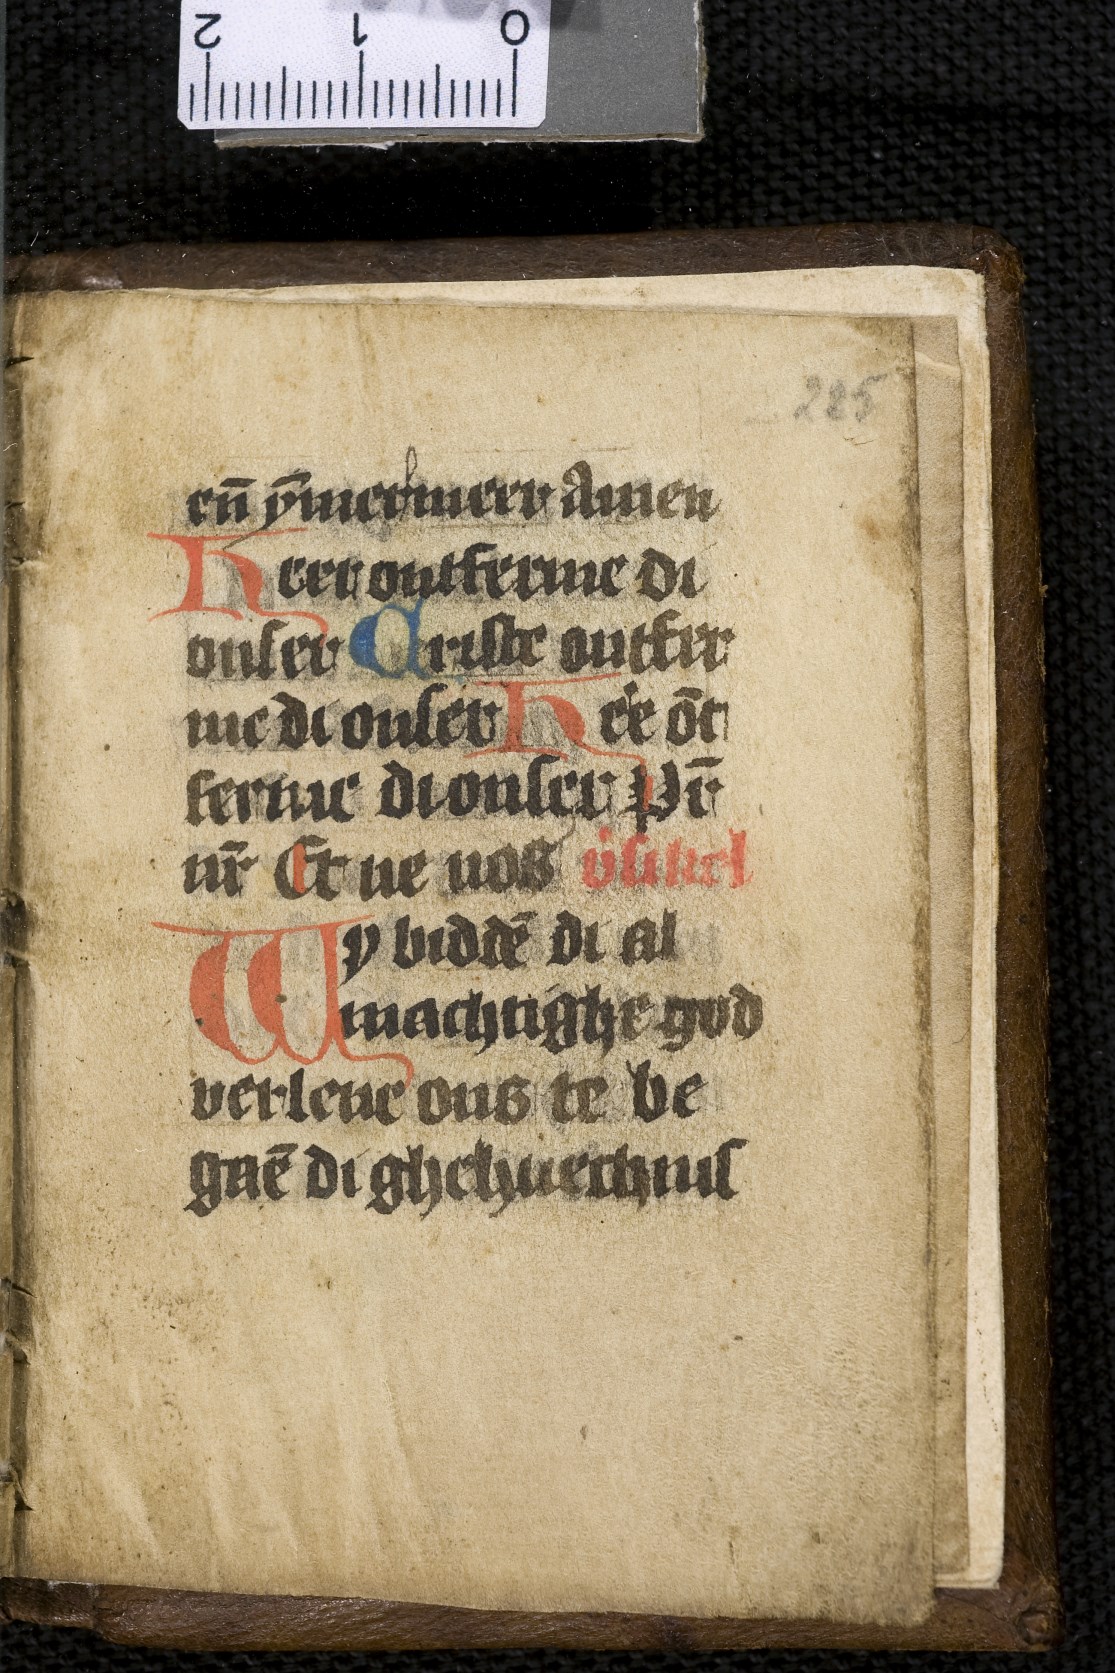 2 1 0
285
en̄ ȳmermeer Amen
Heer ontferme di
onser Criste ontfer
me di onser Hēe ōt
ferme di onser Pr̄
nr̄ Et ne nos
Wy biddē di al
machtighe god
verlene ons te be
gaē di ghehuechnis